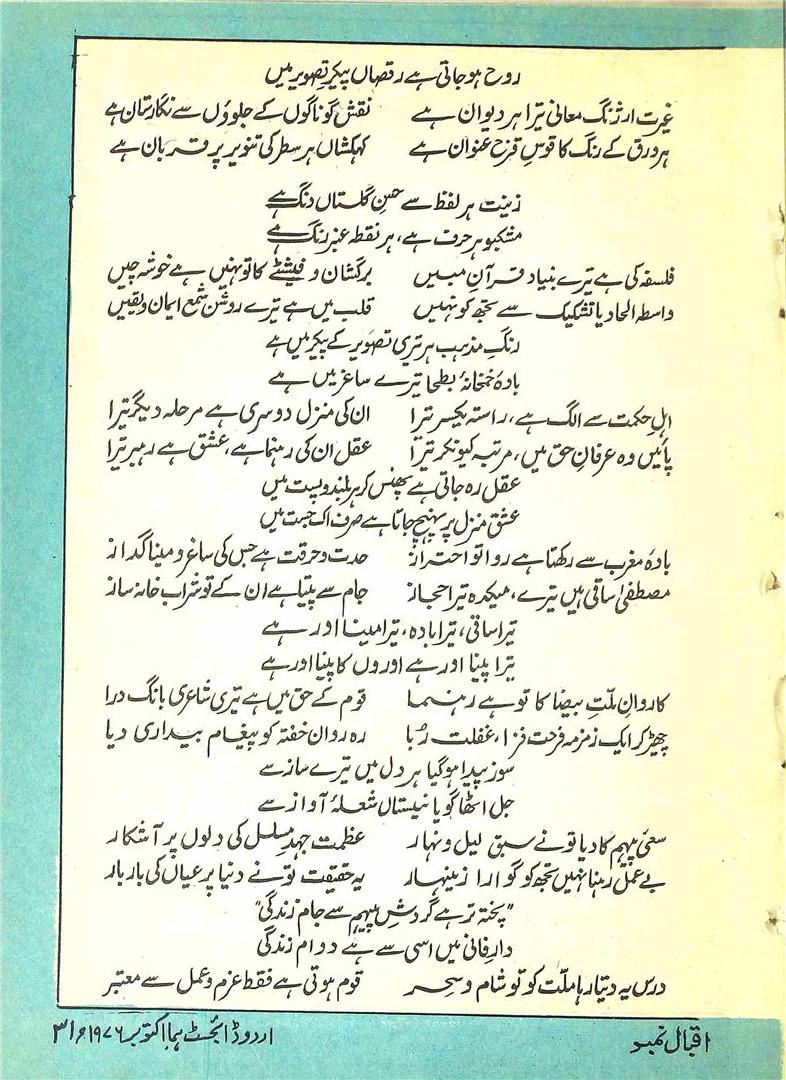 روح ہو جاتی ہے رقصاں پیکرِ تصویر میں
غیرت ارژنگ معانی تیرا ہر دیوان ہے نقش گوناگوں کے جلووں سے نگارستان ہے
ہر ورق کے رنگ کا قوسِ قزح عنوان ہے کہکشاں ہر سطر کی تنویر پر قربان ہے
زینت ہر لفظ سے حسنِ گلستاں دنگ ہے
مشکبو ہر حرف ہے، ہر نقطہ عنبر رنگ ہے
فلسفہ کی ہے تیرے بنیاد قرآنِ مبیں برگساں و فیشٹے کا تو نہیں ہے خوشہ چیں
واسطہ الحاد یا تشکیک سے تجھ کو نہیں قلب میں ہے تیرے روشن شمع ایمان و یقیں
رنگِ مذہب ہر تری تصویر کے پیکر میں ہے
بادۂ خمخانۂ بطحا تیرے ساغر میں ہے
اہلِ حکمت سے الگ ہے، راستہ یکسر تیرا ان کی منزل دوسری ہے مرحلہ دیگر تیرا
پائیں وہ عرفانِ حق میں، مرتبہ کیونکر تیرا عقل ان کی رہنما ہے، عشق ہے رہبر تیرا
عقل رہ جاتی ہے پھنس کر ہر بلند و پست میں
عشق منزل پر پہنچ جاتا ہے صرف اک جست میں
بادۂ مغرب سے رکھتا ہے روا تو احتراز حدت و حرقت ہے جس کی ساغر و مینا گداز
مصطفیٰ ساقی ہیں تیرے، میکدہ تیرا حجاز جام سے پیتا ہے ان کے تو شراب خانہ ساز
تیرا ساقی، تیرا بادہ، تیرا مینا اور ہے
تیرا پینا اور ہے اوروں کا پینا اور ہے
کاروانِ ملّتِ بیضا کا تو ہے رہنما قوم کے حق میں ہے تیری شاعری بانگ درا
چھیڑ کر ایک زمزمہ فرحت فزا، غفلت رُبا رہ روان خفتہ کو پیغام بیداری دیا
سوز پیدا ہو گیا ہر دل میں تیرے ساز سے
جل اٹھا گویا نیستاں شعلۂ آواز سے
سعیِ پیہم کا دیا تو نے سبق لیل و نہار عظمت جہدِ مسلسل کی دلوں پر آشکار
بے عمل رہنا نہیں تجھ کو گوارا زینہار یہ حقیقت تو نے دنیا پر عیاں کی بار بار
"پختہ تر ہے گردشِ پیہم سے جام زندگی"
دارِ فانی میں اسی سے ہے دوام زندگی
درس یہ دیتا رہا ملّت کو تو شام و سحر قوم ہوتی ہے فقط عزم و عمل سے معتبر
اقبال نمبر اردو ڈائجسٹ ہما اکتوبر ۱۹۷۶ء ۳۱